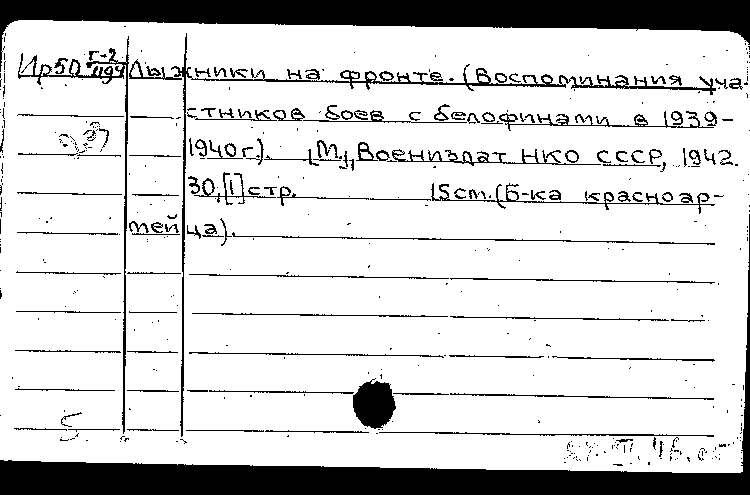 Ир50 Г-2/1194 Лыжники на фронте. (Воспоминания уча-
стников боев с белофинами в 1939-
1940 г.). [М.], Воениздат НКО СССР, 1942.
30,[1] стр. 15 cm. (Б-ка красноар-
мейца).
5.